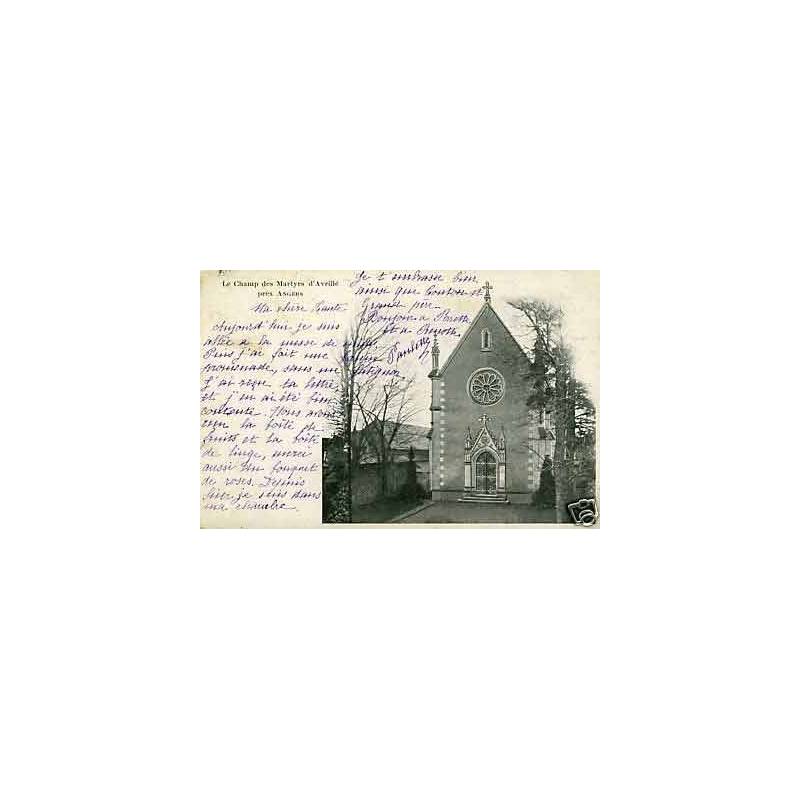 Le Champ des Martyrs d'Avrillé
près ANGERS
Ma chère Tante
Aujourd'hui je suis
allée à la messe de
Puis j'ai fait une
promenade, sans un
J'ai reçu ta lettre
et j'en ai été bien
contente. Nous avons
reçu la boîte de
fruits et la boîte
de linge, merci
aussi un bouquet
de roses. Depuis
hier, je suis dans
ma chambre.
Je t'embrasse bien
ainsi que Tonton et
Grand père
Bonjour à
et à